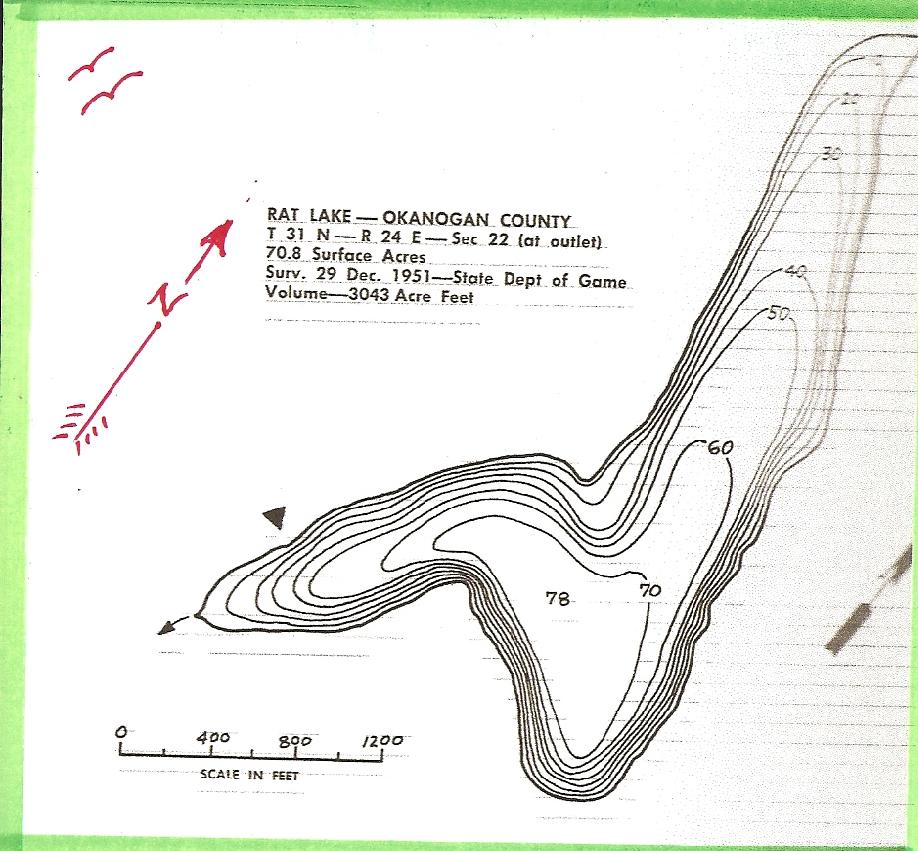 N
RAT LAKE — OKANOGAN COUNTY
T 31 N — R 24 E — Sec 22 (at outlet)
70.8 Surface Acres
Surv. 29 Dec. 1951—State Dept of Game
Volume—3043 Acre Feet
20
30
40
50
60
70
78
0 400 800 1200
SCALE IN FEET